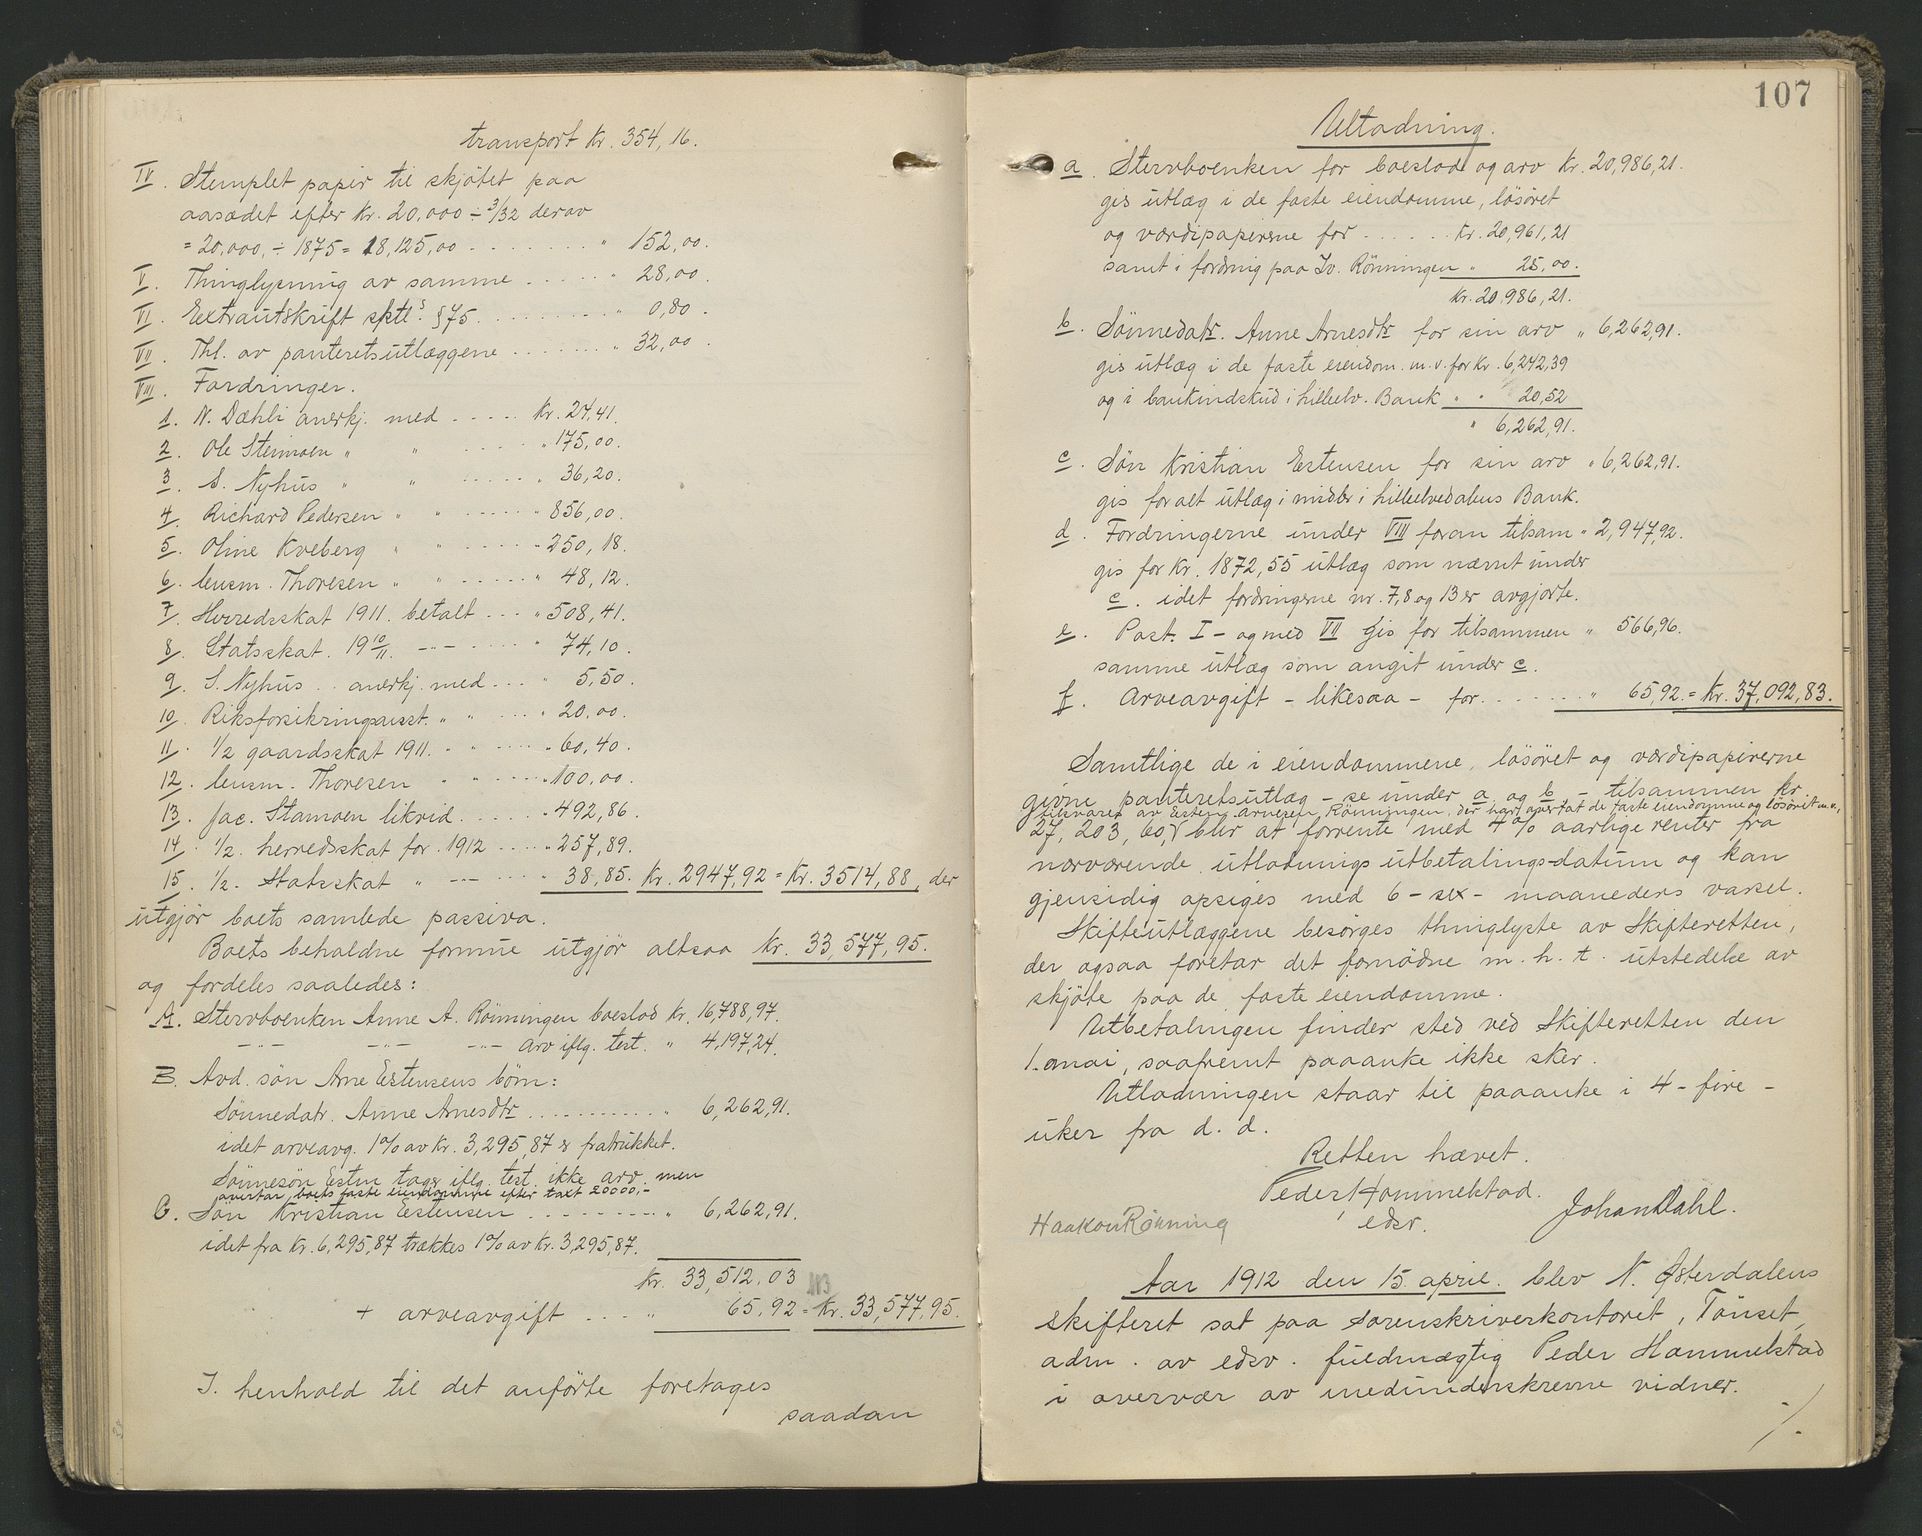 transport Kr. 354,16.
IV. Stemplet papir til skjøtet paa
aasædet efter Kr. 20,000 ÷ 3/32 derav
= 20,000, ÷ 1875 = 18,125,00 . . . . . . . . " 152,00.
V. Thinglysning av samme . . . . . " 28,00
VI. Extrautskrift sktl's §75. . . . . . . . . " 0,80.
VII. Thl. av panteretsutlæggene . . . . . . " 32,00.
VIII. Fordringer.
1. N. Dæhli anerkj. med . . . . . Kr. 24,41.
2. Ole Steimoen " " . . . . " 175,00.
3. S. Nyhus " " . . . . . " 36,20.
4. Richard Pedersen " " . . . . . " 856,00.
5. Oline Kveberg " " . . . . . " 250,18.
6. lensm. Thoresen " " . . . . . " 48,12.
7. Herredsskat 1911. betalt . . . . " 508,41.
8. Statsskat. 19 10/11. -"- . . . . . " 74,10.
9. S. Nyhus . . anerkj. med . . . . " 5,50.
10. Riksforsikringsanst. " " . . . . . " 20,00.
11. 1/2 gaardsskat 1911. " " . . . . " 60,40.
12. lensm. Thoresen " " . . . . " 100,00.
13. Jac. Stamoen likvid . . . . . . " 492,86.
14. 1/2. herredsskat for. 1912 . . . . . " 257,89.
15. 1/2. Statsskat " -"- . . . . " 38,85. Kr. 2947,92 = Kr. 3514,88, der
utgjør boets samlede passiva.
Boets beholdne formue utgjør altsaa Kr. 33,577,95.
og fordeles saaledes:
A. Stervboenken Anne A. Rönningen boeslod Kr. 16,788,97.
-"- -"- -"- arv iflg. test. " 4,197,24.
B. Avd. søn Arne Estensens børn:
Sönnedatr. Anne Arnesdtr . . . . . . . . . . . " 6,262,91.
idet arveavg. 1% av Kr. 3,295,87 er fratrukket.
Sönnesön Esten tager iflg. test. ikke arv, men
overtar boets faste eiendomme efter takt 20000,-
C. Søn Kristian Estensen . . . . . . . . . " 6,262,91.
idet fra Kr. 6,295,87 trækkes 1% av Kr. 3,295,87.
Kr. 33,512,03
+ arveavgift . . . . " 65,92 = Kr. 33,577,95.
I. henhold til det anførte foretages
saadan
107
Utlodning.
a. Stervboenken for boeslod og arv Kr. 20,986,21.
gis utlæg i de faste eiendomme, løsøret
og værdipapirerne for . . . . . Kr. 20,961,21
samt i fordring paa Iv. Rönningen " 25,00.
Kr. 20,986,21.
b. Sönnedatr. Anne Arnesdtr for sin arv " 6,262,91.
gis utlæg i de faste eiendom. m.v. for Kr. 6,242,39
og i bankindskud i Lilleelv. Bank " " 20,52
" 6,262,91.
c. Søn Kristian Estensen for sin arv " 6,262,91.
gis for alt utlæg i midler i Lilleelvedalens Bank.
d. Fordringerne under VIII foran tilsam " 2,947,92.
gis for Kr. 1872,55 utlæg som nævnt under
c. idet fordringerne nr. 7,8 og 13 er avgjorte.
e. Post. I - og med VII gis for tilsammen " 566,96.
samme utlæg som angit under c.
f. Arveavgift - likesaa - for . . . . . . " 65,92. = Kr. 37,092,83.
Samtlige de i eiendommene, løsøret og værdipapirerne
givne panteretsutlæg - se under a og b - tilsammen kr.
tilsvares av Esten Arnesen Rönningen, der har overtat de faste eiendomme og løsöret m.v.,
27,203,60, blir at forrente med 4% aarlige renter fra
nærværende utlodnings utbetalings-datum og kan
gjensidig opsiges med 6 - sex - maaneders varsel.
Skifteutlæggene besørges thinglyste av Skifteretten,
der ogsaa foretar det fornødne m. h. t. utstedelse av
skjøte paa de faste eiendomme.
Utbetalingen finder sted ved Skifteretten den
1. mai, saafremt paaanke ikke sker.
Utlodningen staar til paaanke i 4 - fire -
uker fra d. d.
Retten hævet.
Peder Hammelstad.
edsv.
Johan Dahl.
Haakon Rönning
Aar 1912 den 15. april. blev N. Østerdalens
skifteret sat paa sorenskriverkontoret, Tönset,
adm. av edsv. fuldmægtig Peder Hammelstad
i overvær av medunderskrevne vidner.
./.